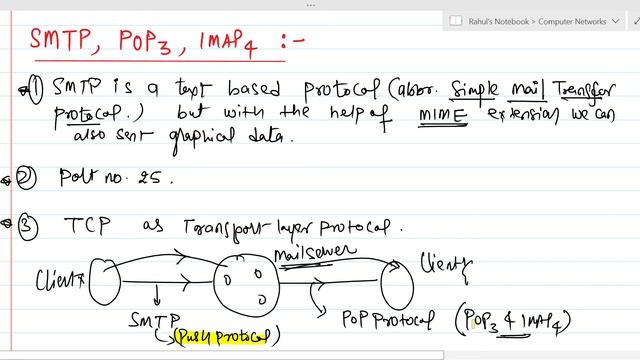 Rahul's Notebook > Computer Networks
SMTP, POP3, IMAP4 :-
① SMTP is a text based protocol (abbr. Simple Mail Transfer
protocol.) but with the help of MIME extension we can
also sent graphical data.
② Port no. 25.
③ TCP as Transport layer protocol.
mailserver
Client
Client
SMTP
(Push Protocol)
POP Protocol (POP3 & IMAP4)